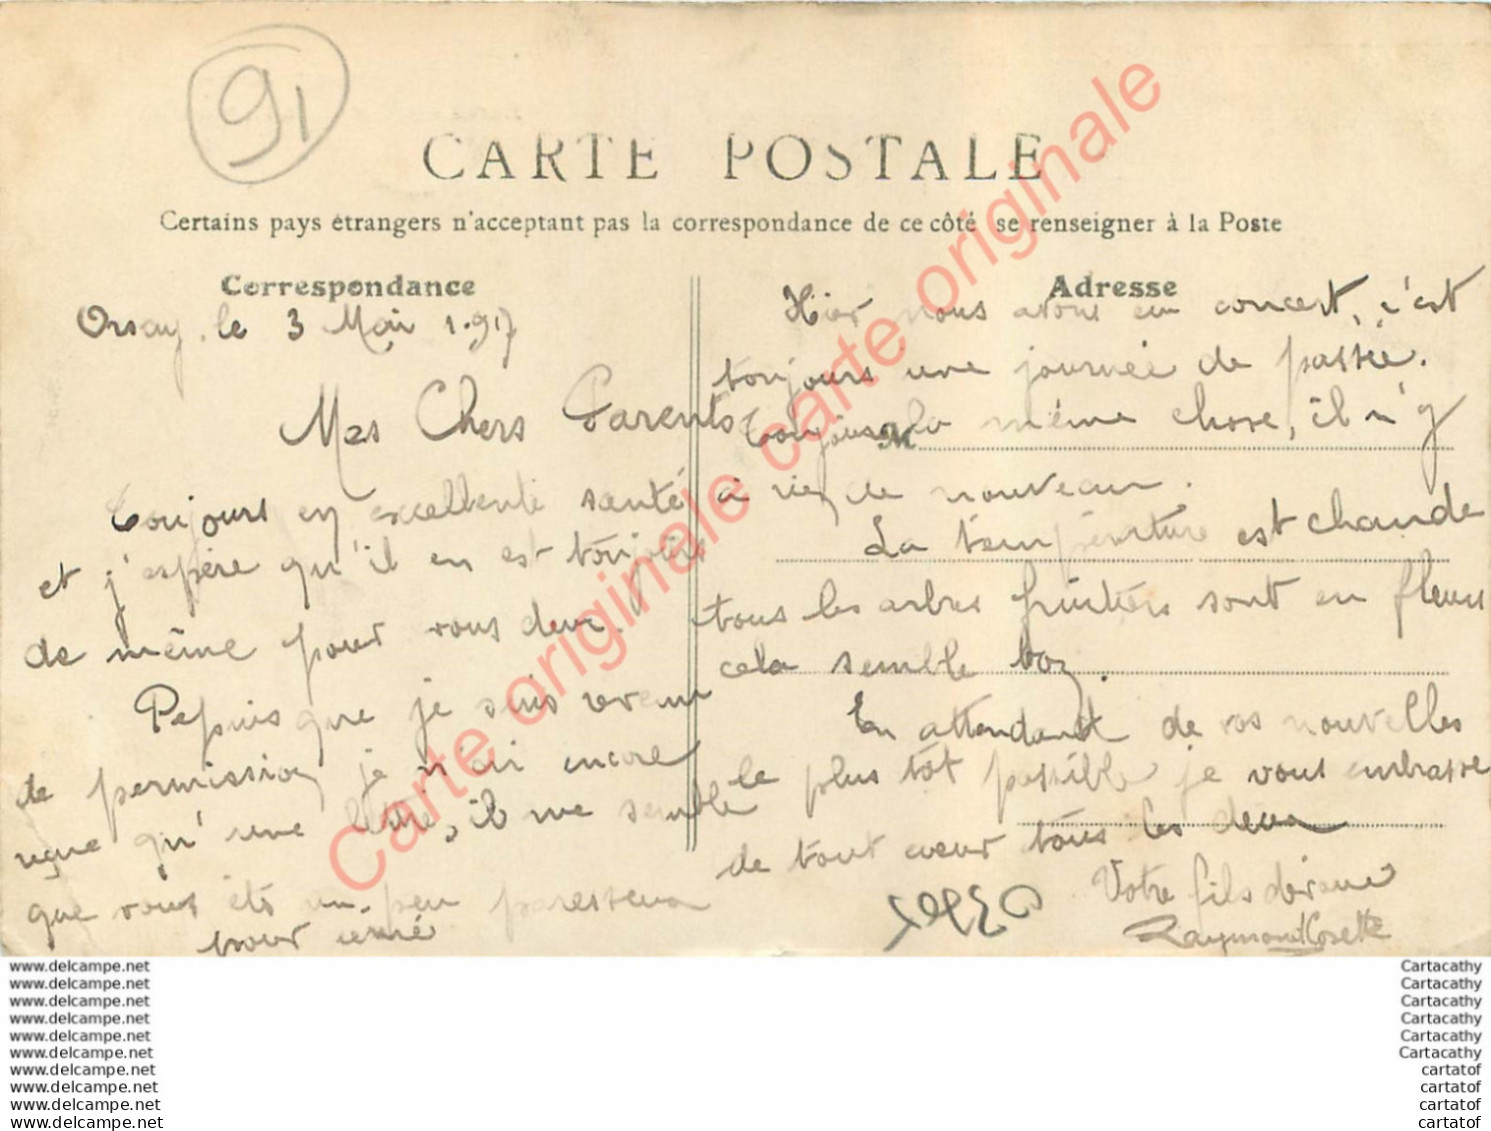 91
CARTE POSTALE
Certains pays étrangers n'acceptant pas la correspondance de ce côté se renseigner à la Poste
Correspondance
Orsay, le 3 Mai 1917
Mes Chers Parents
Toujours en excellente santé
et j'espère qu'il en est toujours
de même pour vous deux.
Depuis que je suis revenu
de permission je n'ai encore
reçue qu'une lettre, il me semble
que vous êts un peu paresseux
pour
Adresse
Hier nous avons eu concert, c'est
toujours une journée de passée.
Toujours la même chose, il n'y
M
à rien de nouveau.
La température est chaude
tous les arbres fruitiers sont en fleurs
cela semble bon.
En attendant de vos nouvelles
le plus tôt possible je vous embrasse
de tout cœur tous les deux
Votre fils dévoué
Raymond Cosette
Carte originale carte originale carte originale
www.delcampe.net
www.delcampe.net
www.delcampe.net
www.delcampe.net
www.delcampe.net
www.delcampe.net
www.delcampe.net
www.delcampe.net
www.delcampe.net
www.delcampe.net
Cartacathy
Cartacathy
Cartacathy
Cartacathy
Cartacathy
Cartacathy
cartatof
cartatof
cartatof
cartatof